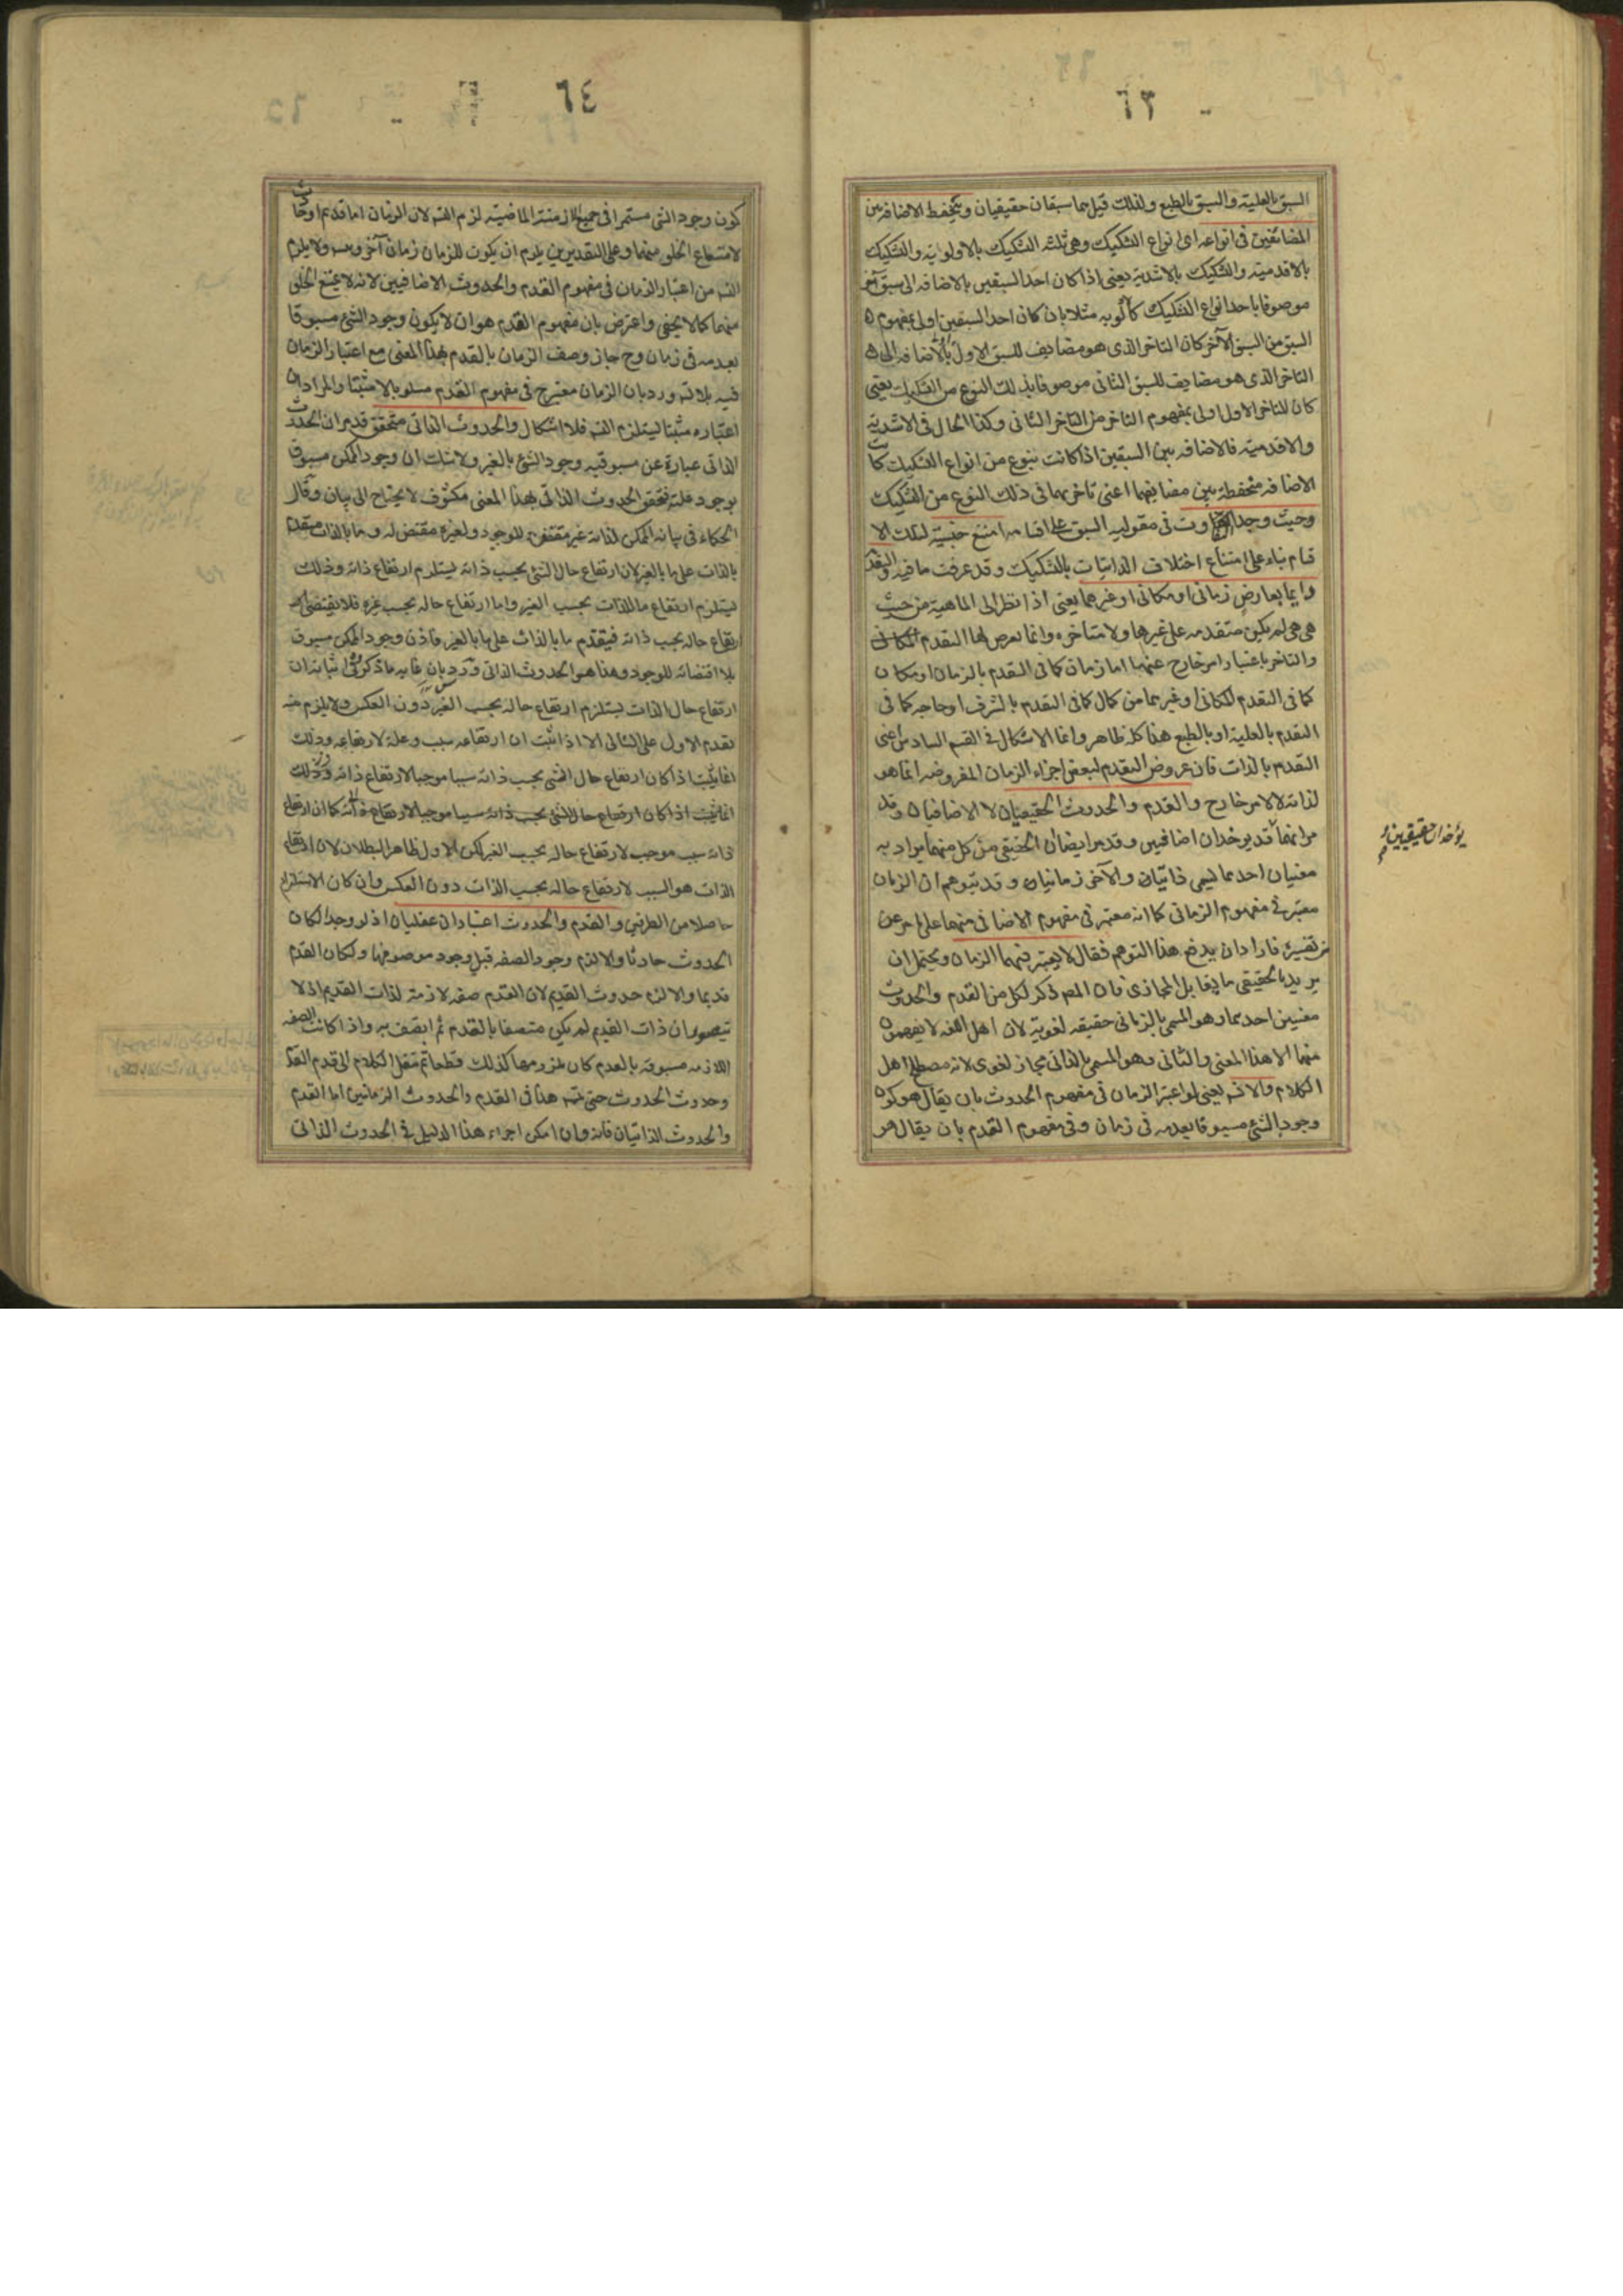 ٦٣
السبق بالعلية والسبق بالطبع ولذلك قيل هما سبقان حقيقيان ويتحفظ الاضافة بين
المضائفين فى انواعه اى انواع التشكيك وهى ثلثة التشكيك بالاولوية والتشكيك
بالاقدمية والتشكيك بالاشدية يعنى اذا كان احد السبقين بالاضافة الى سبق آخر
موصوفا باحد انواع التشكيك كالاولوية مثلا بان كان احد السبقين اولى بمفهوم
السبق من السبق الآخر كان التاخر الذى هو مضايف للسبق الاول بالاضافة الى
التاخر الذى هو مضايف للسبق الثانى موصوفا بذلك النوع من التشكيك يعنى
كان للتاخر الاول اولى بمفهوم التاخر من التاخر الثانى وكذا الحال فى الاشدية
والاقدمية فالاضافة بين السبقين اذا كانت بنوع من انواع التشكيك كانت
الاضافة منحفظة بين مضايفيهما اعنى تاخريهما فى ذلك النوع من التشكيك
وحيث وجد التفاوت فى مقولية السبق على اقسامه امتنع جنسيته لتلك الا
قسام بناء على امتناع اختلاف الذاتيات بالتشكيك وقد عرفت ما فيه والتقدم
دايما بعارض زمانى او مكانى او غيرهما يعنى اذا نظر الى الماهية من حيث
هى هى لم يكن متقدمة على غيرها ولا متاخرة وانما تعرض لها التقدم
والتاخر باعتبار امر خارج عنهما اما زمان كما فى التقدم بالزمان او مكان
كما فى التقدم المكانى او غيرهما من كمال كما فى التقدم بالشرف او حاجة كما فى
التقدم بالعلية او بالطبع هذا كله ظاهر وانما الاشكال فى القسم السادس اعنى
التقدم بالذات فان عروض التقدم لبعض اجزاء الزمان المفروضة انما هو
لذاته لا لامر خارج والقدم والحدوث الحقيقيان لا الاضافيان وقد
مر انهما قد يوخذان اضافيين وقد مر ايضا ان الحقيقى من كل منهما يراد به
يؤخذان حقيقيين و
معنيان احدهما يسمى ذاتيان والآخر زمانيان وقد يتوهم ان الزمان
معتبر فى مفهوم الزمانى كما انه معتبر فى مفهوم الاضافى منهما على ما مر عن
تفسيره فاراد ان يدفع هذا التوهم فقال لا يعتبر فيهما الزمان ويحتمل ان
يريد بالحقيقى ما يقابل المجازى فان المصـ ذكر لكل من القدم والحدوث
معنيين احدهما وهو المسمى بالزمانى حقيقة لغوية لان اهل اللغة لا يفهمون
منهما الا هذا المعنى والثانى وهو المسمى بالذاتى مجاز لغوى لانه مصطلح اهل
الكلام والا تسـ يعنى لو اعتبر الزمان فى مفهوم الحدوث بان يقال هو كون
وجود الشئ مسبوقا بعدمه فى زمان وفى مفهوم القدم بان يقال هو
٦٤
كون وجود الشئ مستمرا فى جميع الازمنة الماضية لزم التسـ لان الزمان اما قديم او حادث
لامتناع الخلو عنهما وعلى التقديرين يلزم ان يكون للزمان زمان آخر ويتسـ ولا يلزم
التسـ من اعتبار الزمان فى مفهوم القدم والحدوث الاضافيين لانه لا يمتنع الخلو
عنهما كما لا يخفى واعترض بان مفهوم القدم هو ان لا يكون وجود الشئ مسبوقا
بعدمه فى زمان وح جاز وصف الزمان بالقدم بهذا المعنى مع اعتبار الزمان
فيه بلا تسـ ورد بان الزمان معتبر ح فى مفهوم القدم مسلوبا لا مثبتا والمراد ان
اعتباره مثبتا يستلزم التسـ فلا اشكال والحدوث الذاتى متحقق قد مر ان الحدوث
الذاتى عبارة عن مسبوقية وجود الشئ بالغير ولا شك ان وجود الممكن مسبوق
بوجود علته فتحقق الحدوث الذاتى بهذا المعنى مكشوف لا يحتاج الى بيان وقال
الحكماء فى بيانه الممكن لذاته غير مقتض للوجود ولغيره مقتض له وما بالذات متقدم
بالذات على ما بالغير لان ارتفاع حال الشئ بحسب ذاته يستلزم ارتفاع ذاته وذلك
يستلزم ارتفاع ما للذات بحسب الغير واما ارتفاع حاله بحسب غيره فلا يقتضى ا
رتفاع حاله بحسب ذاته فيتقدم ما بالذات على ما بالغير فاذن وجود الممكن مسبوق
بلا اقتضائه للوجود وهذا هو الحدوث الذاتى ورد بان غاية ما ذكر فى اثباته ان
ارتفاع حال الذات يستلزم ارتفاع حاله بحسب الغير دون العكس ولا يلزم منه
تقدم الاول على الثانى الا اذا ثبت ان ارتفاعه سبب وعلة لارتفاعه وذلك
انما يثبت اذا كان ارتفاع حال الشئ بحسب ذاته سببا موجبا لارتفاع ذاته وذلك
انما يثبت اذا كان ارتفاع حال الشئ بحسب ذاته سببا موجبا لارتفاع ذاته كما ان ارتفاع
ذاته سبب موجب لارتفاع حاله بحسب الغير لكن الاول ظاهر البطلان لان ارتفاع
الذات هو السبب لارتفاع حاله بحسب الذات دون العكس وان كان الاستلزام
حاصلا من الطرفين والقدم والحدوث اعتباران عقليان اذ لو وجدا لكان
الحدوث حادثا والا لزم وجود الصفة قبل وجود موصوفها ولكان القدم
قديما والا لزم حدوث القديم لان القدم صفة لازمة لذات القديم اذ لا
يتصور ان ذات القديم لم يكن متصفا بالقدم ثم اتصف به واذا كانت الصفة
اللازمة مسبوقة بالعدم كان ملزومها كذلك قطعا ثم ننقل الكلام الى قدم القدم
وحدوث الحدوث حتى يتسـ هذا فى القدم والحدوث الزمانيين اما القدم
والحدوث الذاتيان فانه وان امكن اجراء هذا الدليل فى الحدوث الذاتى